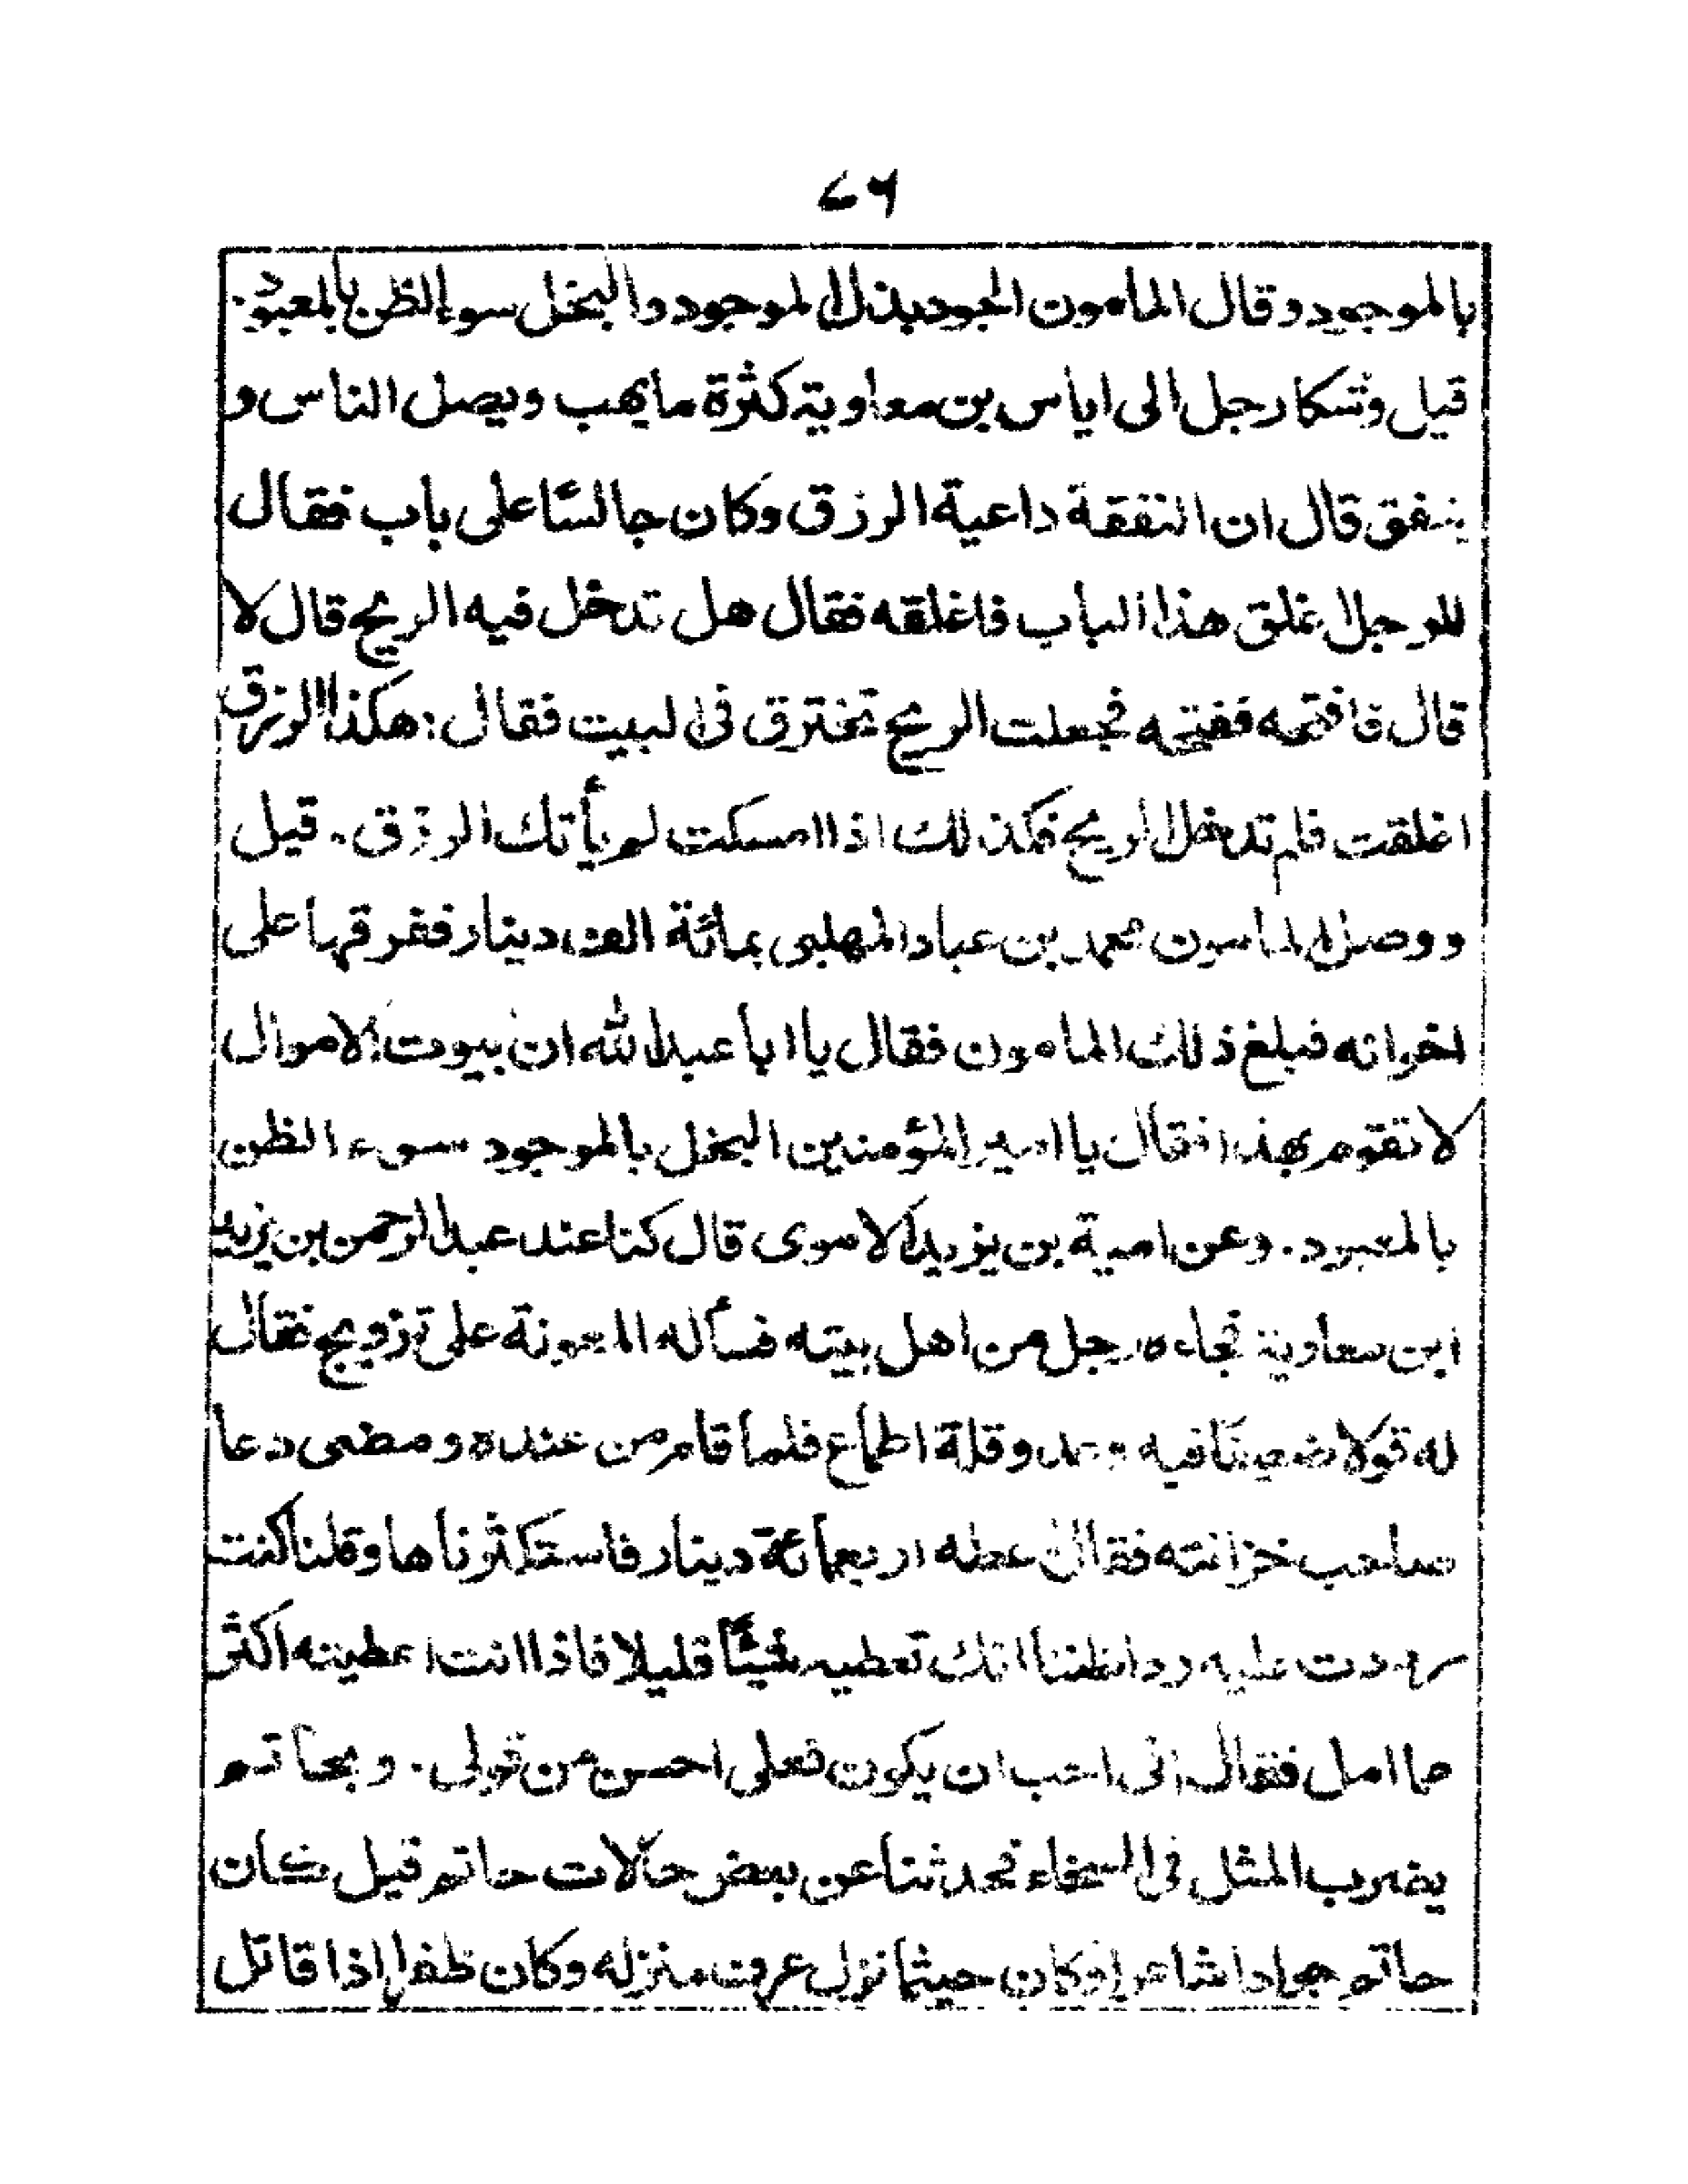 ٤٦
بالموجود وقال المامون الجود بذل الموجود والبخل سوء الظن بالمعبود.
قيل وشكا رجل الى اياس بن معاوية كثرة ما يهب ويصل الناس و
ينفق قال ان النفقة داعية الرزق وكان جالسًا على باب فقال
للرجل اغلق هذا الباب فاغلقه فقال هل تدخل فيه الريح قال لا
قال فافتحه ففتحه فجعلت الريح تخترق فى البيت فقال: هكذا الرزق
اغلقت فلم تدخل الريح فكذلك اذا امسكت لم يأتك الرزق. قيل
ووصل المامون محمد بن عباد المهلبى بمائة الف دينار ففرقها على
اخوانه فبلغ ذلك المامون فقال يا ابا عبد الله ان بيوت الاموال
لا تقوم بهذا فقال يا امير المؤمنين البخل بالموجود سوء الظن
بالمعبود. وعن امية بن يزيد الاموى قال كنا عند عبد الرحمن بن يزيد
ابن معاوية فجاءه رجل من اهل بيته فسأله المعونة على تزويج فقال
له قولا ضعيفًا فيه وعد وقلة اطماع فلما قام من عنده ومضى دعا
صاحب خزانته فقال اعطه اربعمائة دينار فاستكثرناها وقلنا كنت
رددت عليه ردا ظننا انك تعطيه شيئًا قليلا فاذا انت اعطيته اكثر
مما امل فقال انى احب ان يكون فعلى احسن من قولى. وبحاتم
يضرب المثل فى السخاء فحدثنا عن بعض حالات حاتم قيل كان
حاتم جوادا شاعرا وكان حيثما نزل عرف منزله وكان ظفرا اذا قاتل